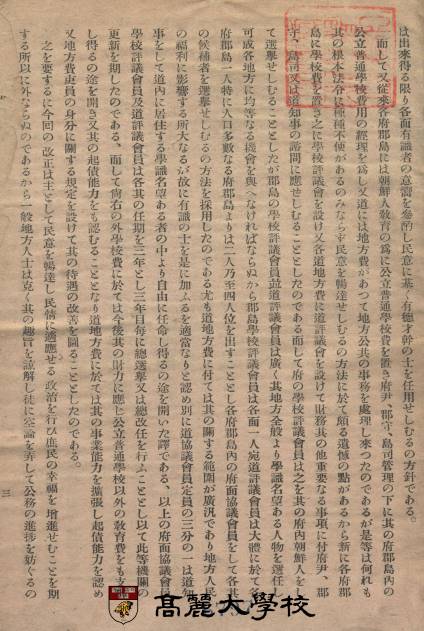 は出來得る限り各面有識者の意嚮を參酌し民意に基く有德才幹の士を任用せしむるの方針である。
而して又從來各府郡島には朝鮮人敎育の爲に公立普通學校費を置き府尹、郡守、島司管理の下に其の府郡島內の
公立普通學校費用の經理を爲し又道には地方費があつて地方公共の事務を處理し來つたのであるが是等は何れも
其の根本法令に種種不便があるのみならず民意を暢達せしむるの方法に於て頗る遺憾の點があるから新に各府郡
島に學校費を置き之に學校評議會を設け又各道地方費に道評議會を設けて財務其の他重要なる事項に付府尹、郡
守、島司又は道知事の諮問に應せしむることとしたのである而して府の學校評議會員は之を其の府內朝鮮人をし
て選擧せしむることとしたが郡島の學校評議會員並道評議會員は廣く其地方全般より學識名望ある人物を選任し
可成各地方に均等なる機會を與へなければならぬから郡島學校評議會員は各面一人宛道評議會員は大體に於て各
府郡島一人特に人口多數なる府郡島よりは二人乃至四人位を出すこととし各府郡島內の府面協議會員をして各其
の候補者を選擧せしむるの方法を採用したのである尤も道地方費に付ては其の關する範圍が廣汎であり地方人民
の福利に影響する所大なるが故に有識の士を是に加ふるを適當なりと認め別に道協議會員定員の三分の一は道知
事をして道內に居住する學識名望ある者の中より自由に任命し得るの途を開いた譯である、以上の府面協議會員
學校評議會員及道評議會員は各其の任期を三年とし三年目每に總選擧又は總改任を行ふこととし以て此等機關の
更新を期したのである、而して尙右の外學校費に於ては今後其の財力に應じ公立普通學校以外の敎育費をも支
し得るの途を開き又其の起債能力をも認むることとなり道地方費に於ては其の事業能力を擴張し起債能力を認め
又地方費吏員の身分に關する規定を設けて其の待遇の改善を圖ることとしたのである。
之を要するに今回の改正は主として民意を暢達し民情に適應せる政治を行ひ庶民の幸福を增進せむことを期
する所以に外ならぬのであるから一般地方人士は克く其の趣旨を諒解し徒に空論を弄して公務の進捗を妨ぐるの
三
高麗大學校